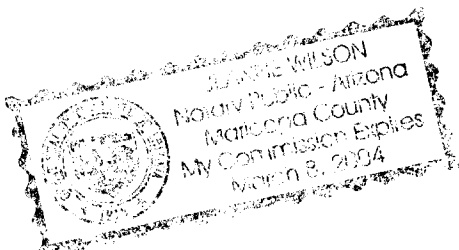 WILSON
Notary Public - Arizona
Maricopa County
My Commission Expires
March 8, 2004